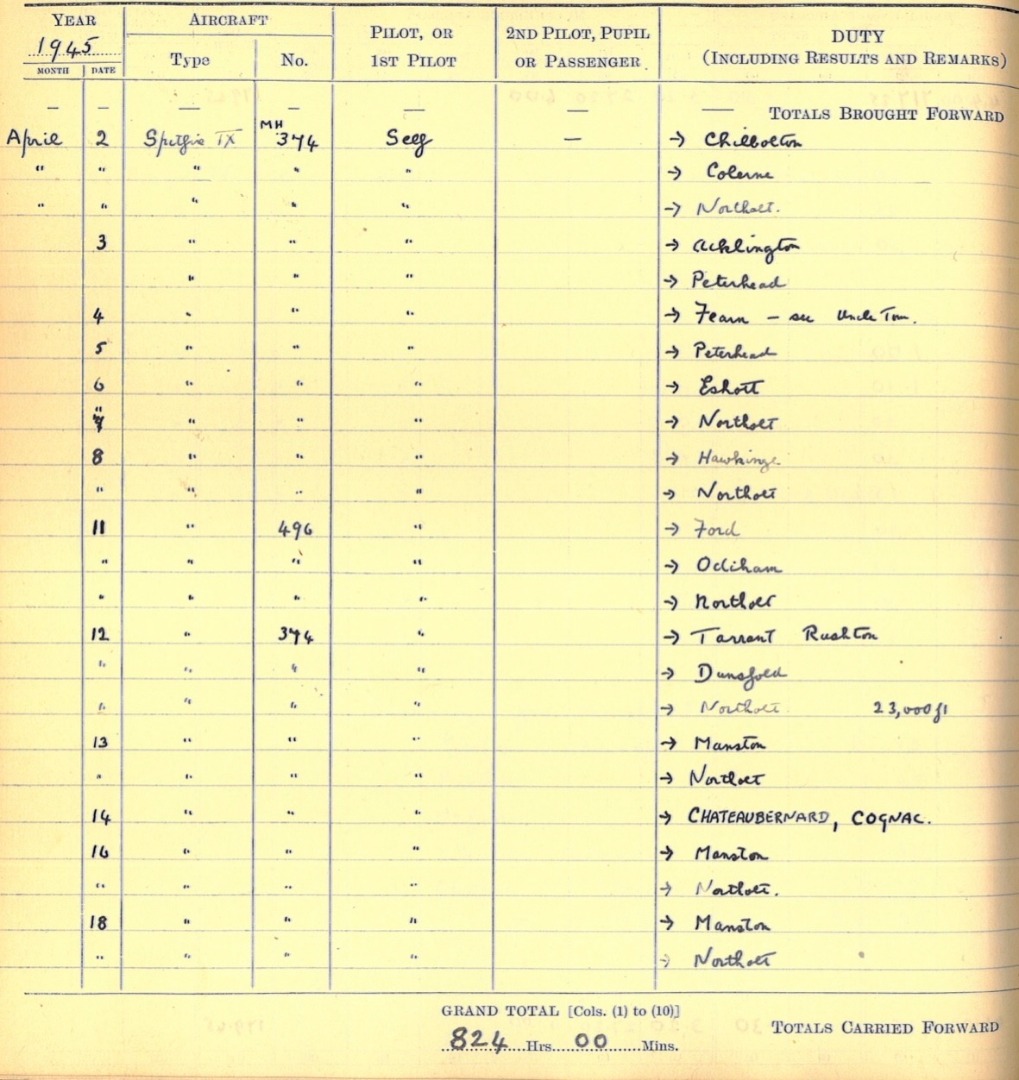 YEAR AIRCRAFT PILOT, OR 2ND PILOT, PUPIL DUTY
1945 Type No. 1ST PILOT OR PASSENGER (INCLUDING RESULTS AND REMARKS)
MONTH DATE
— — — — — — — TOTALS BROUGHT FORWARD
April 2 Spitfire IX MH 374 Self — → Chilbolton
" " " " " → Colerne
" " " " " → Northolt.
3 " " " → Acklington
" " " → Peterhead
4 " " " → Fearn – see Uncle Tom.
5 " " " → Peterhead
6 " " " → Eshott
" " " " → Northolt
8 " " " → Hawkinge
" " " " → Northolt
11 " 496 " → Ford
" " " " → Odiham
" " " " → Northolt
12 " 374 " → Tarrant Rushton
" " " " → Dunsfold
" " " " → Northolt 23,000ft
13 " " " → Manston
" " " " → Northolt
14 " " " → CHATEAUBERNARD, COGNAC.
16 " " " → Manston
" " " " → Northolt.
18 " " " → Manston
" " " " → Northolt
GRAND TOTAL [Cols. (1) to (10)]
824 Hrs. 00 Mins. TOTALS CARRIED FORWARD